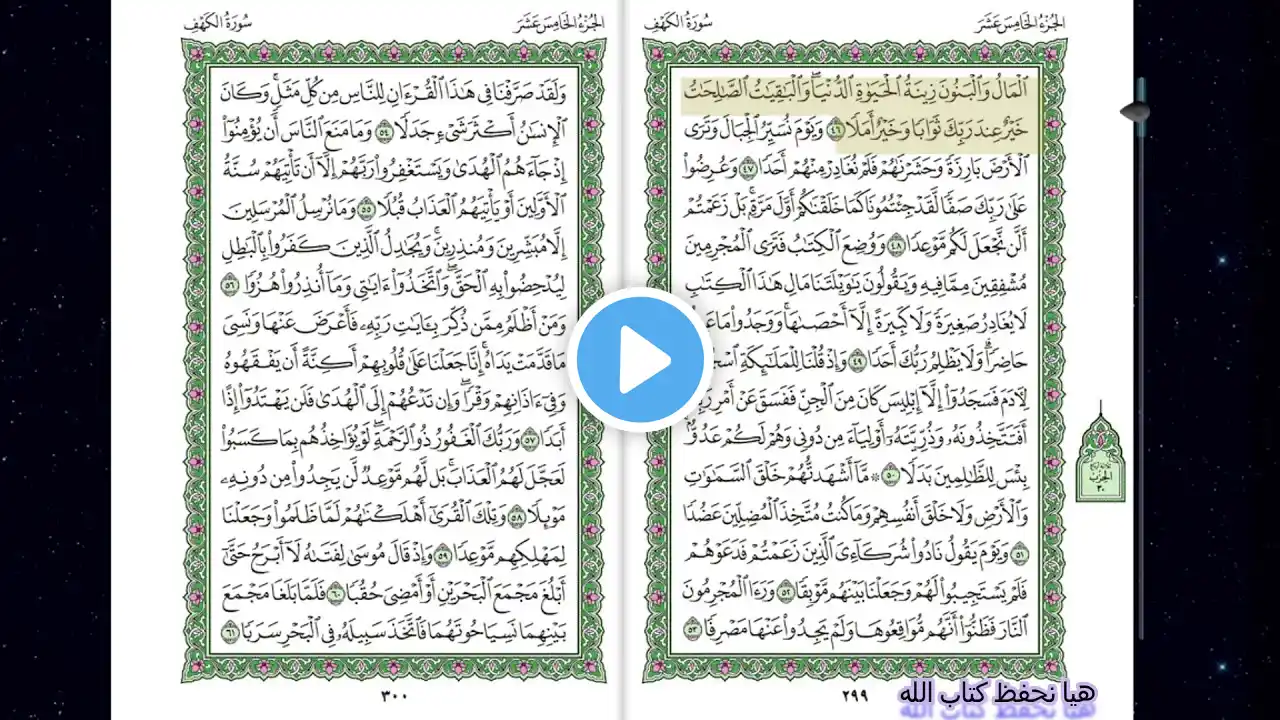 سُورَةُ الكَهْفِ
الجُزْءُ الخَامِسَ عَشَرَ
ٱلْمَالُ وَٱلْبَنُونَ زِينَةُ ٱلْحَيَوٰةِ ٱلدُّنْيَاۖ وَٱلْبَٰقِيَٰتُ ٱلصَّٰلِحَٰتُ
خَيْرٌ عِندَ رَبِّكَ ثَوَابًا وَخَيْرٌ أَمَلًا ٤٦ وَيَوْمَ نُسَيِّرُ ٱلْجِبَالَ وَتَرَى
ٱلْأَرْضَ بَارِزَةً وَحَشَرْنَٰهُمْ فَلَمْ نُغَادِرْ مِنْهُمْ أَحَدًا ٤٧ وَعُرِضُوا۟
عَلَىٰ رَبِّكَ صَفًّا لَّقَدْ جِئْتُمُونَا كَمَا خَلَقْنَٰكُمْ أَوَّلَ مَرَّةٍۭۚ بَلْ زَعَمْتُمْ
أَلَّن نَّجْعَلَ لَكُم مَّوْعِدًا ٤٨ وَوُضِعَ ٱلْكِتَٰبُ فَتَرَى ٱلْمُجْرِمِينَ
مُشْفِقِينَ مِمَّا فِيهِ وَيَقُولُونَ يَٰوَيْلَتَنَا مَالِ هَٰذَا ٱلْكِتَٰبِ
لَا يُغَادِرُ صَغِيرَةً وَلَا كَبِيرَةً إِلَّآ أَحْصَىٰهَاۚ وَوَجَدُوا۟ مَا
حَاضِرًاۗ وَلَا يَظْلِمُ رَبُّكَ أَحَدًا ٤٩ وَإِذْ قُلْنَا لِلْمَلَٰٓئِكَةِ
لِـَٔادَمَ فَسَجَدُوٓا۟ إِلَّآ إِبْلِيسَ كَانَ مِنَ ٱلْجِنِّ فَفَسَقَ عَنْ أَمْرِ رَبِّهِۦٓۗ
أَفَتَتَّخِذُونَهُۥ وَذُرِّيَّتَهُۥٓ أَوْلِيَآءَ مِن دُونِى وَهُمْ لَكُمْ عَدُوٌّۢۚ
بِئْسَ لِلظَّٰلِمِينَ بَدَلًا ٥٠ ۞ مَّآ أَشْهَدتُّهُمْ خَلْقَ ٱلسَّمَٰوَٰتِ
وَٱلْأَرْضِ وَلَا خَلْقَ أَنفُسِهِمْ وَمَا كُنتُ مُتَّخِذَ ٱلْمُضِلِّينَ عَضُدًا
٥١ وَيَوْمَ يَقُولُ نَادُوا۟ شُرَكَآءِىَ ٱلَّذِينَ زَعَمْتُمْ فَدَعَوْهُمْ
فَلَمْ يَسْتَجِيبُوا۟ لَهُمْ وَجَعَلْنَا بَيْنَهُم مَّوْبِقًا ٥٢ وَرَءَا ٱلْمُجْرِمُونَ
ٱلنَّارَ فَظَنُّوٓا۟ أَنَّهُم مُّوَاقِعُوهَا وَلَمْ يَجِدُوا۟ عَنْهَا مَصْرِفًا ٥٣
٢٩٩
الحزب
٣٠
سُورَةُ الكَهْفِ
الجُزْءُ الخَامِسَ عَشَرَ
وَلَقَدْ صَرَّفْنَا فِى هَٰذَا ٱلْقُرْءَانِ لِلنَّاسِ مِن كُلِّ مَثَلٍۚ وَكَانَ
ٱلْإِنسَٰنُ أَكْثَرَ شَىْءٍ جَدَلًا ٥٤ وَمَا مَنَعَ ٱلنَّاسَ أَن يُؤْمِنُوٓا۟
إِذْ جَآءَهُمُ ٱلْهُدَىٰ وَيَسْتَغْفِرُوا۟ رَبَّهُمْ إِلَّآ أَن تَأْتِيَهُمْ سُنَّةُ
ٱلْأَوَّلِينَ أَوْ يَأْتِيَهُمُ ٱلْعَذَابُ قُبُلًا ٥٥ وَمَا نُرْسِلُ ٱلْمُرْسَلِينَ
إِلَّا مُبَشِّرِينَ وَمُنذِرِينَۚ وَيُجَٰدِلُ ٱلَّذِينَ كَفَرُوا۟ بِٱلْبَٰطِلِ
لِيُدْحِضُوا۟ بِهِ ٱلْحَقَّۖ وَٱتَّخَذُوٓا۟ ءَايَٰتِى وَمَآ أُنذِرُوا۟ هُزُوًا ٥٦
وَمَنْ أَظْلَمُ مِمَّن ذُكِّرَ بِـَٔايَٰتِ رَبِّهِۦ فَأَعْرَضَ عَنْهَا وَنَسِىَ
مَا قَدَّمَتْ يَدَاهُۚ إِنَّا جَعَلْنَا عَلَىٰ قُلُوبِهِمْ أَكِنَّةً أَن يَفْقَهُوهُ
وَفِىٓ ءَاذَانِهِمْ وَقْرًاۖ وَإِن تَدْعُهُمْ إِلَى ٱلْهُدَىٰ فَلَن يَهْتَدُوٓا۟ إِذًا
أَبَدًا ٥٧ وَرَبُّكَ ٱلْغَفُورُ ذُو ٱلرَّحْمَةِۖ لَوْ يُؤَاخِذُهُم بِمَا كَسَبُوا۟
لَعَجَّلَ لَهُمُ ٱلْعَذَابَۚ بَل لَّهُم مَّوْعِدٌ لَّن يَجِدُوا۟ مِن دُونِهِۦ
مَوْئِلًا ٥٨ وَتِلْكَ ٱلْقُرَىٰٓ أَهْلَكْنَٰهُمْ لَمَّا ظَلَمُوا۟ وَجَعَلْنَا
لِمَهْلِكِهِم مَّوْعِدًا ٥٩ وَإِذْ قَالَ مُوسَىٰ لِفَتَىٰهُ لَآ أَبْرَحُ حَتَّىٰٓ
أَبْلُغَ مَجْمَعَ ٱلْبَحْرَيْنِ أَوْ أَمْضِىَ حُقُبًا ٦٠ فَلَمَّا بَلَغَا مَجْمَعَ
بَيْنِهِمَا نَسِيَا حُوتَهُمَا فَٱتَّخَذَ سَبِيلَهُۥ فِى ٱلْبَحْرِ سَرَبًا ٦١
٣٠٠
هيا نحفظ كتاب الله